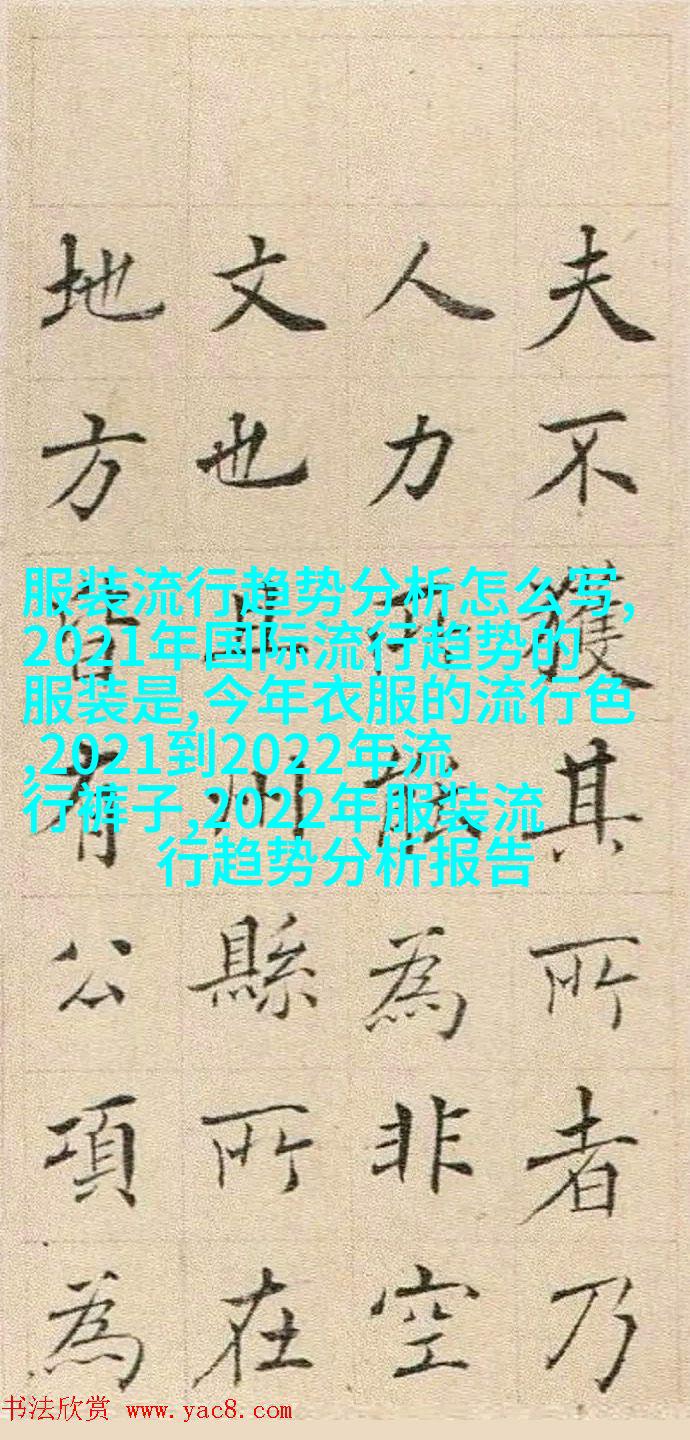 夫不獲其所者乃
人力所能為非空
文也且州縣所在
地方皆有公項為
服装流行趋势分析怎么写,
2021年国际流行趋势的
服装是,今年衣服的流行色
,2021到2022年流
行裤子,2022年服装流
行趋势分析报告
书法欣赏 www.yac8.com